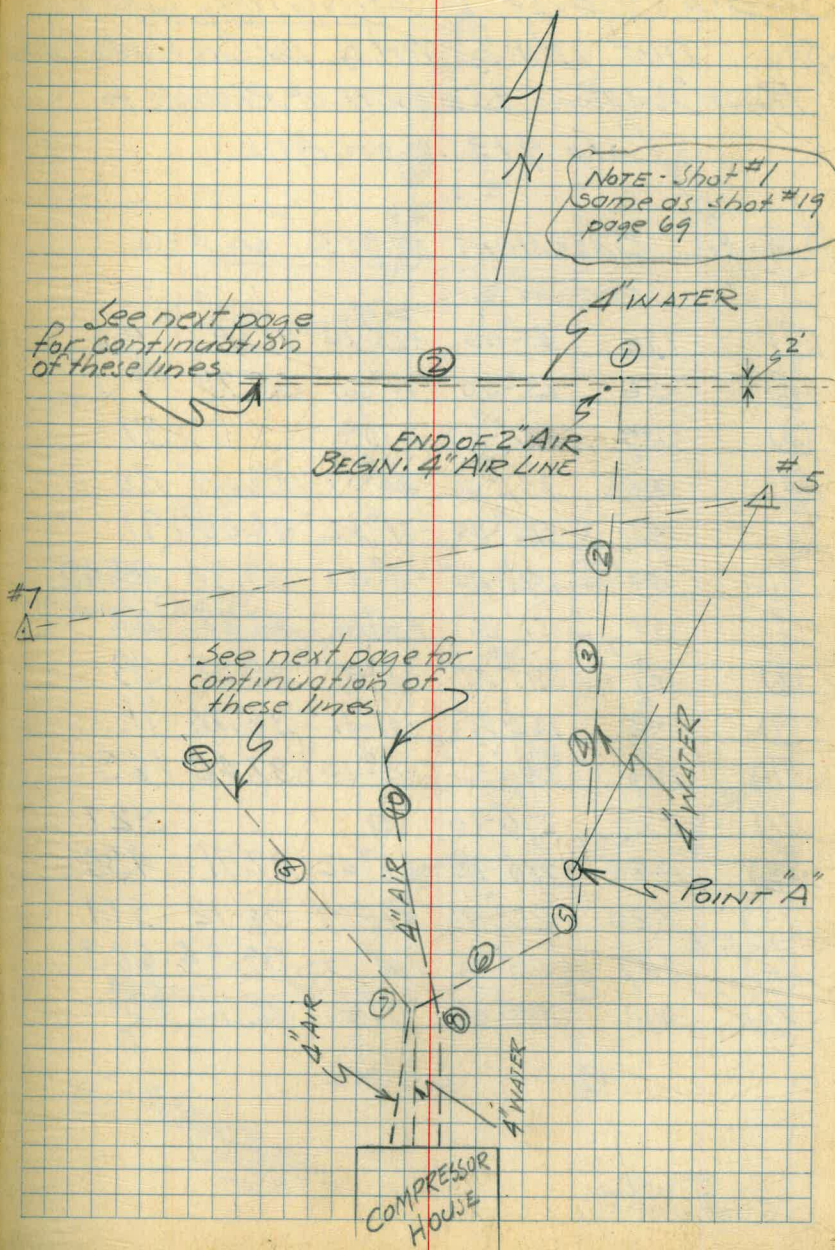 N
NOTE - Shot #1
same as shot #19
page 69
4" WATER
See next page
for continuation
of these lines
②
①
2'
END OF 2" AIR
BEGIN. 4" AIR LINE
#5
②
#7
See next page for
continuation of
these lines
③
④
4" WATER
⑪
⑩
⑨
4" AIR
POINT "A"
⑤
⑥
⑦
⑧
4" AIR
4" WATER
COMPRESSOR
HOUSE